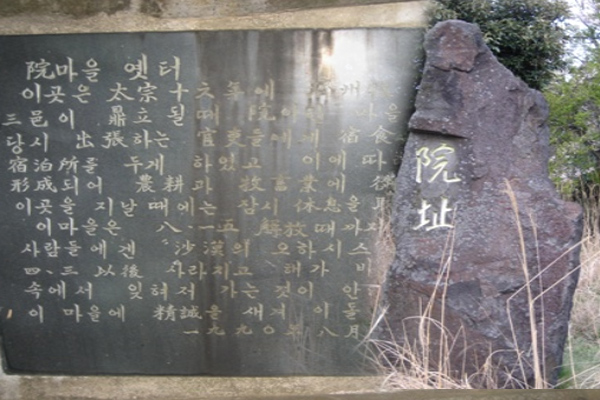 院마을 옛터
이곳은 太宗十六年에
三邑이 鼎立될 때 院이 을
당시 出張하는 官吏들에게 宿食
宿泊所를 두게 하였고 이에 따
形成되어 農耕과 牧畜業에 從
이곳을 지날 때에는 잠시 休息을 取
이마을은 八·一五 解放때까지
사람들에겐 沙漠의 오아시스
四·三 以後 사라지고 해가 바
속에서 잊혀져 가는것이 안
이 마을에 精誠을 새겨 이 돌을
一九九○年 八月
院址